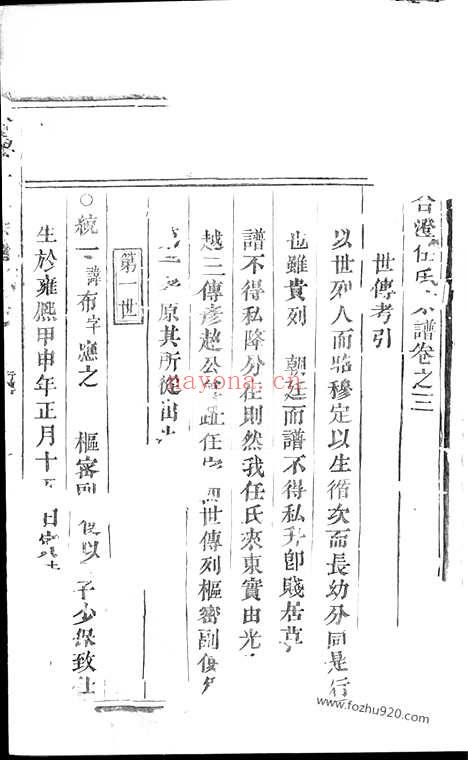 合澄任氏宗譜卷之三
世傳考引
以世列人而昭穆定以生循次而長幼分同是行
也雖貴列 朝廷而譜不得私升卽賤居草
譜不得私降分在則然我任氏來東實由光
越三傳彥超公 任 世傳列樞密副使
原其所從由
第一世
○統一 諱布字應之 樞密副使以 子少保致仕
生於雍熙甲申年正月十 日
nayona.cn
www.fozhu920.com